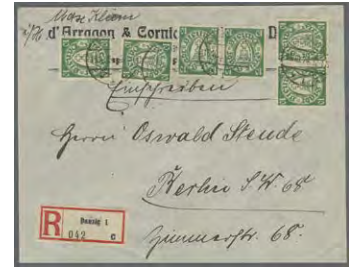 Max Klamm
i/H d'Arragon & Cornic D
Einschreiben
Herrn Oswald Steude
Berlin S.W. 68
Zimmerstr. 68.
R Danzig 1
042 c